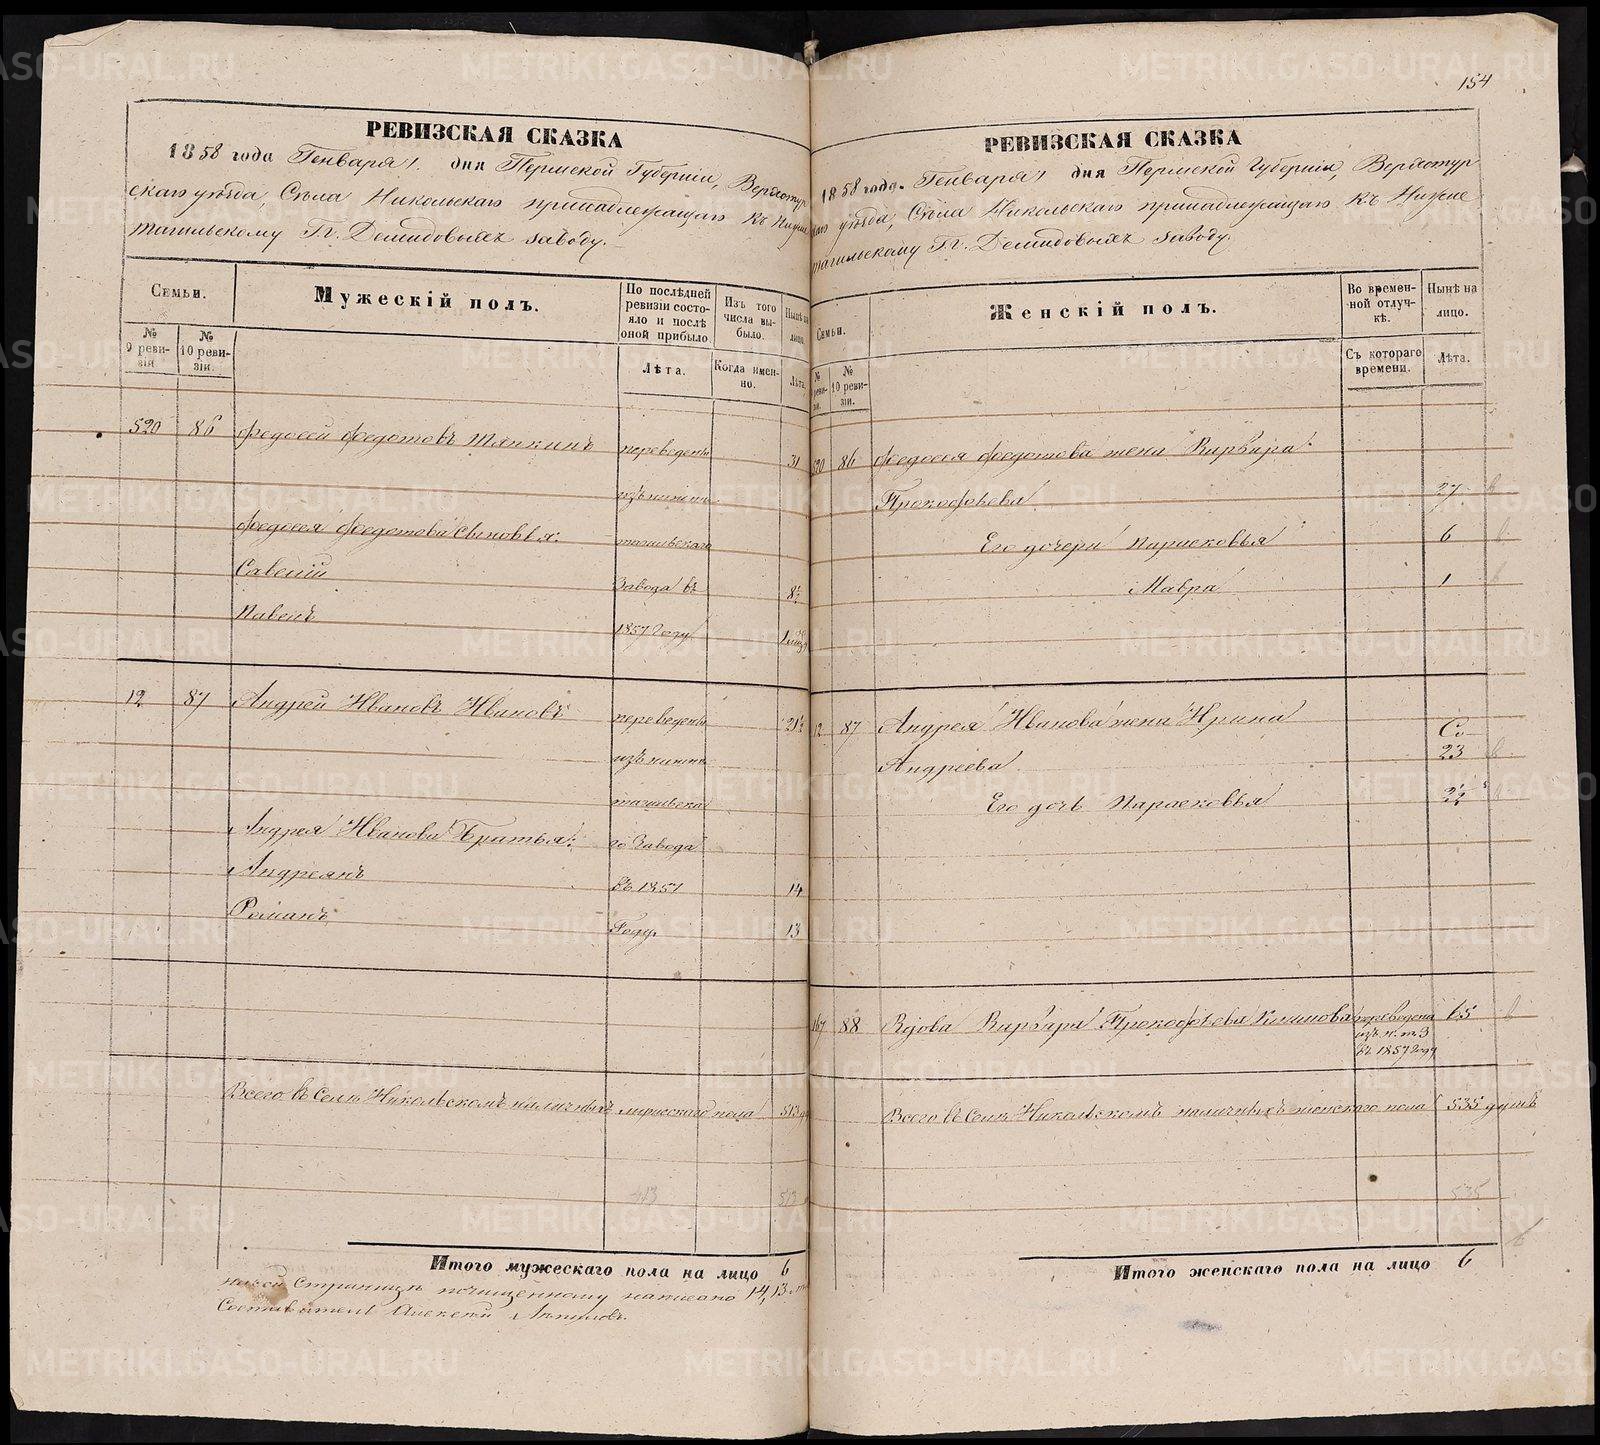 РЕВИЗСКАЯ СКАЗКА
1858 года Генваря 1 дня Пермской Губернiи, Верхотур
скаго уѣзда, Села Никольскаго принадлежащаго къ Нижне
тагильскому Гг. Демидовыхъ заводу.
Семьи.
Мужескiй полъ.
По послѣдней ревизiи состо-
яло и послѣ оной прибыло
Изъ того числа вы-
было.
Нынѣ на лицо.
№ 9 реви-
зiи
№ 10 реви-
зiи.
Лѣта.
Когда имен-
но.
Лѣта.
520 86 Федосей Федотовъ Тяпкинъ переведены 31
изъ нижне
Федосея Федотова сыновья: тагильскаго
Савелiй Завода въ 8½
Павелъ 1857 Году 1
12 87 Андрей Ивановъ Ивановъ переведены 21½
изъ нижне
тагильска
Андрея Иванова Братья: го Завода
Андреянъ въ 1857 14
Романъ Году. 13
Всего въ Селѣ Никольскомъ наличныхъ мужескаго пола 513
413 513
Итого мужескаго пола на лицо 6
На сей Страницѣ по чищенному написано 14, 13
Составителъ Алексей
154
РЕВИЗСКАЯ СКАЗКА
1858 года. Генваря 1 дня Пермской Губернiи, Верхотур
скаго уѣзда, Села Никольскаго принадлежащаго къ Нижне
тагильскому Гг. Демидовыхъ заводу.
Семьи.
Женскiй полъ.
Во времен-
ной отлуч-
кѣ.
Нынѣ на лицо.
№ 9 реви-
зiи.
№ 10 реви-
зiи.
Съ котораго времени.
Лѣта.
520 86 Федосея Федотова жена Варвара
Прокофьева 27
Его дочери Парасковья 6
Мавра 1
12 87 Андрея Иванова жена Ирина Со
Андреева 23
Его дочь Парасковья
167 88 Вдова Варвара Прокофьева Климова переведена 65
изъ н. т. З
въ 1857 году
Всего въ Селѣ Никольскомъ наличныхъ женскаго пола 535 душъ
535
6
Итого женскаго пола на лицо 6
METRIKI.GASO-URAL.RU